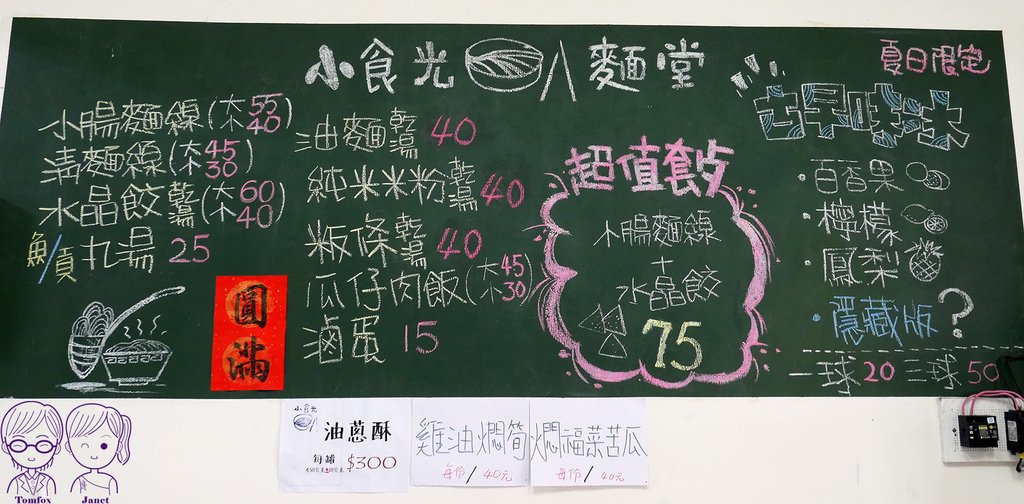 小食光 麵堂
小腸麵線(大55 小40)
清麵線(大45 小30)
水晶餃乾湯(大60 小40)
魚/貢丸湯 25
圓滿
油麵乾湯 40
純米米粉乾湯 40
粄條乾湯 40
瓜仔肉飯(大45 小30)
滷蛋 15
超值套餐
小腸麵線
+
水晶餃
75
夏日限定
古早味冰
·百香果
·檸檬
·鳳梨
·隱藏版?
一球20 三球50
小食光
油蔥酥
每罐 $300
雞油燜筍
每份/40元
燜福菜苦瓜
每份/40元
Tomfox Janet